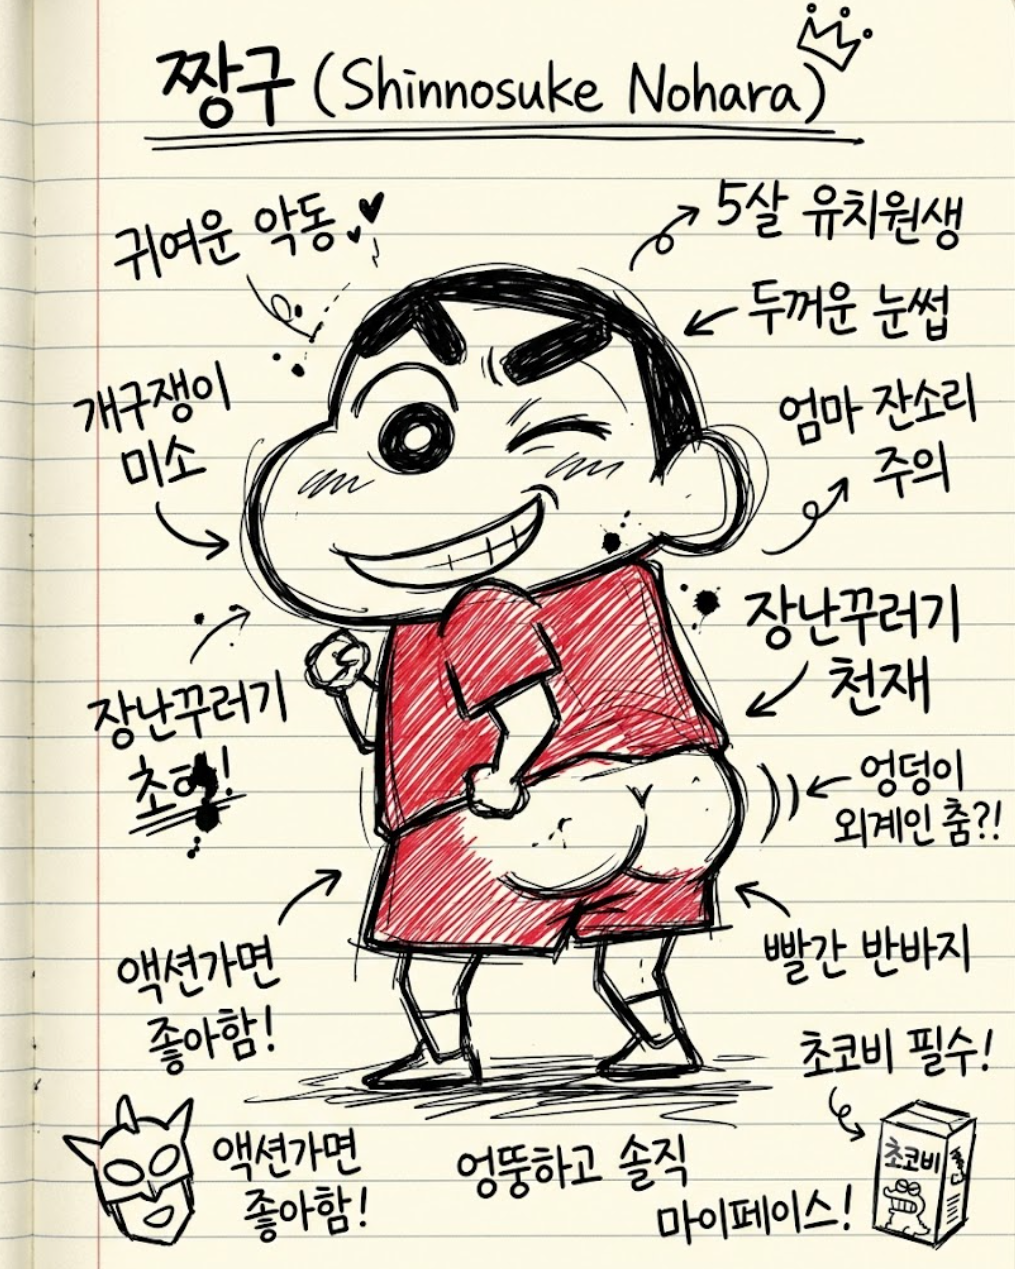 짱구 (Shinnosuke Nohara)
귀여운 악동
5살 유치원생
두꺼운 눈썹
개구쟁이
미소
엄마 잔소리
주의
장난꾸러기
천재
장난꾸러기
엉덩이
외계인 춤?!
액션가면
좋아함!
빨간 반바지
초코비 필수!
액션가면
좋아함!
엉뚱하고 솔직
마이페이스!
초코비